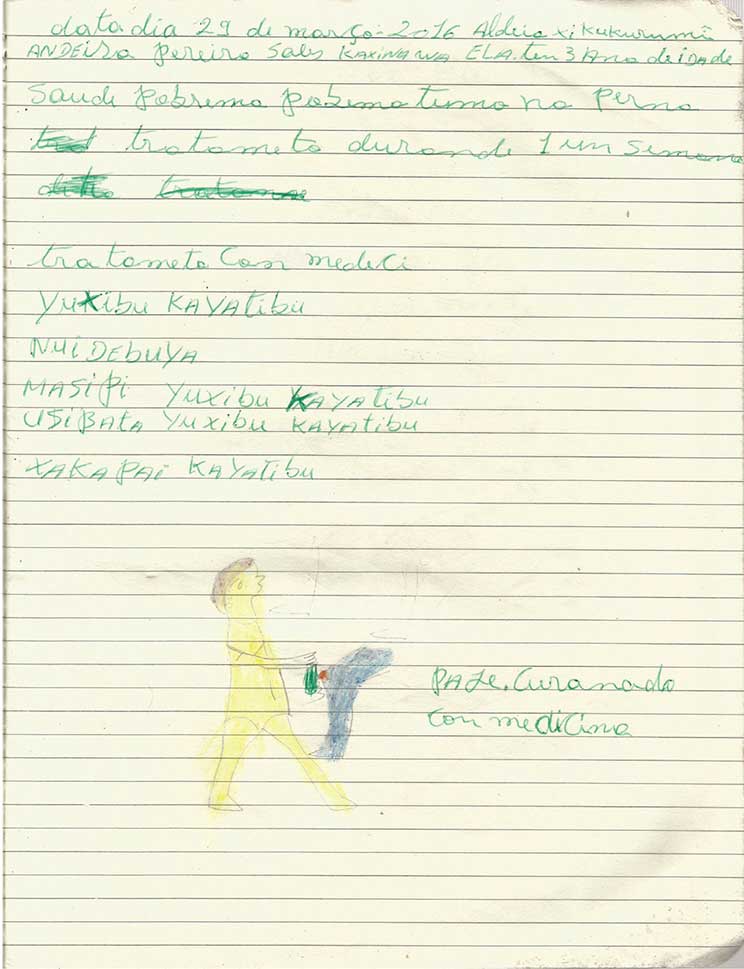 data dia 29 de março-2016 Aldeia xi kukurumã
ANDEiza pereiro Sales KAXINAWA ELA.ten 3 Ano de iDAde
Saude pobremo pobemo tumo no perno
tratometo durande 1 um Semana
tratometo Con medeci
YUXibu KAYAtibu
NUi DEbUYA
MASiPi YUXibu KAYAtibu
USiBAtA YUXibu KAYAtibu
XAKA PAi KAYAtibu
PAJE.Curanado
con medicina